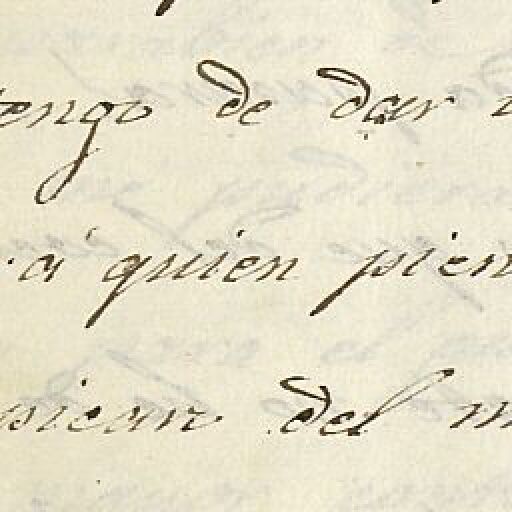 tengo de dar
á quien pien
sican del m